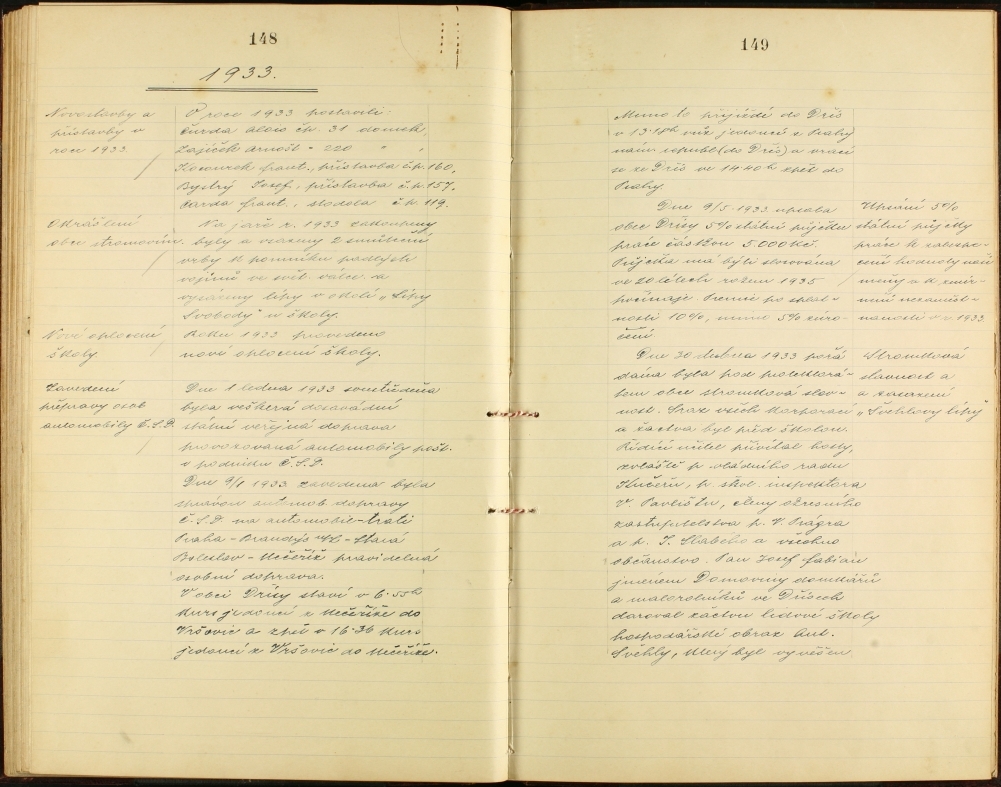 148
1933.
Novostavby a
přístavby v
roce 1933
V roce 1933 postavili:
Čurda Alois čp. 31 domek,
Zajíček Arnošt - 220 " ,
Kocourek Frant., přístavba č.p. 160,
Bystrý Josef, přístavba č.p. 157,
Čarda Frant., stodola č.p. 119.
Okrášlení
obce stromovím.
Na jaře r. 1933 zakoupeny
byly a vsazeny 2 smuteční
vrby k pomníku padlých
vojínů ve svět. válce a
vysázeny lípy v okolí „Lípy
Svobody" u školy.
Nové oplocení
školy.
Roku 1933 provedeno
nové oplocení školy.
Zavedení
přepravy osob
automobily Č.S.D.
Dne 1 ledna 1933 soustředěna
byla veškerá dosavadní
státní veřejná doprava
provozovaná automobily pošt.
v podniku Č.S.D.
Dne 9/1 1933 zavedena byla
správou automob. dopravy
Č.S.D. na automobil-trati
Praha - Brandýs n/L - Stará
Boleslav - Mečeříž pravidelná
osobní doprava.
V obci Dřísy staví v 6.55h
kurs jedoucí z Mečeříže do
Vršovic a zpět v 16.36 kurs
jedoucí z Vršovic do Mečeříže.
149
Mimo to přijíždí do Dřís
v 13.18h vůz jedoucí z Prahy
nám. republ. (do Dřís) a vrací
se ze Dřís ve 14.40h zpět do
Prahy.
Dne 9/5 1933 upsala
obec Dřísy 5% státní půjčku
práce částkou 5.000 Kč.
Půjčka má býti slosována
ve 20 létech rokem 1935
počínaje. Premie po splat-
nosti 10%, mimo 5% zúro-
čení
Upsání 5%
státní půjčky
práce k zabezpe-
čení hodnoty naší
měny a k zmír-
nění nezaměst-
nanosti v r. 1933
Dne 30 dubna 1933 pořá
dána byla pod protektorá-
tem obce stromková slav-
nost. Sraz všech korporací
a žactva byl před školou.
Řídící učitel přivítal hosty,
zvláště p. vládního radu
Kučeru, p. škol. inspektora
V. Pavlištu, členy okresního
zastupitelstva p. V. Ságra
a p. J. Slabého a všechno
občanstvo. Pan Josef Fabián
jménem Domoviny domkářů
a malorolníků ve Dřísech
daroval žáctvu lidové školy
hospodářské obraz Ant.
Švehly, který byl vyvěšen
Stromková
slavnost a
a zasazení
„Švehlovy lípy"